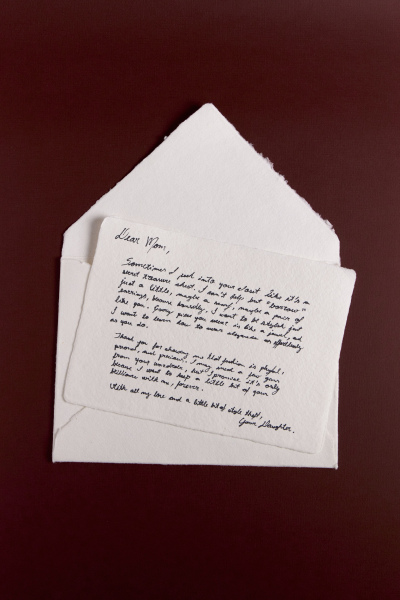 Dear Mom,
Sometimes I peek into your closet like it's a
secret treasure chest. I can't help but "borrow"
just a little, maybe a scarf, maybe a pair of
earrings, because honestly, I want to be stylish just
like you. Every piece you wear is like a jewel, and
I want to learn how to wear elegance as effortlessly
as you do.
Thank you for showing me that fashion is playful,
personal, and precious. I may sneak a few
from your wardrobe, but I promise it's only
because I want to keep a little bit of your
brilliance with me, forever.
With all my love and a little bit of style theft,
Your Daughter.